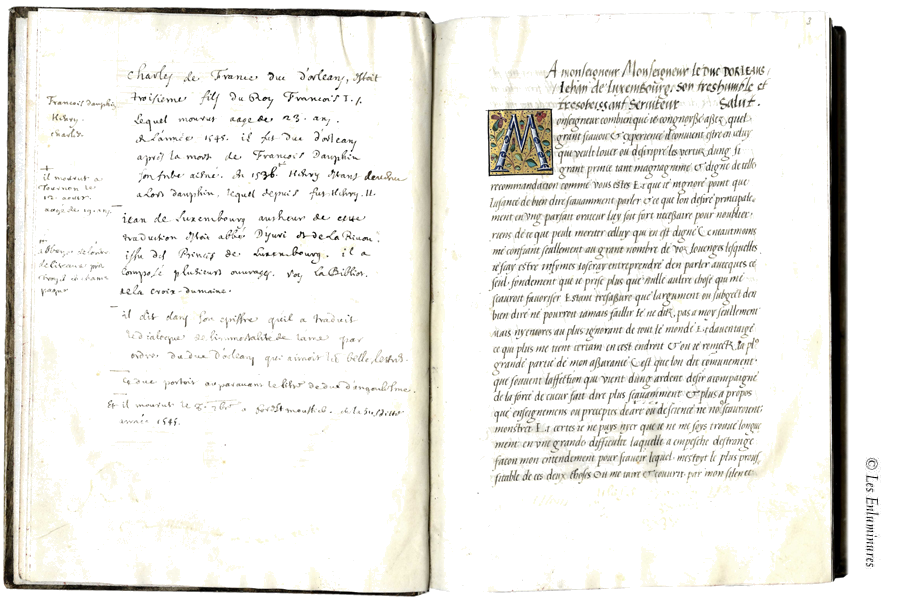 Charles de France duc d'orleans, estoit
troisieme fils du Roy Francois I.
Lequel mourut aage de 23. ans.
de l'année 1545. il fut duc d'orleans
apres la mort de François Dauphin
son frere aisné. En 1536 Henry estant devenu
alors dauphin, lequel depuis fut Henry II.
François dauphin
Henry.
charles.
il mourut a
Tournon le
12 aoust
aagé de 19. ans.
Jean de Luxembourg autheur de cette
traduction estoit abbé d'Yuri et de La Rivou
issu des Princes de Luxembourg. il a
composé plusieurs ouvrages. voy la Biblioth.
de la croix-du maine.
il dit dans son epistre qu'il a traduit
le dialogue de l'immortalité de l'ame par
ordre du duc d'orleans qui aimoit les belles lettres.
Ce duc portoit auparavant le titre de duc d'angoulesme.
Et il mourut le 8. 7bre a
année 1545.
3
A monseigneur Monseigneur le DUC DORLEANS,
Iehan de Luxembourg, son treshumble et
tresobeissant seruiteur Salut.
M
onseigneur combien que ie congnoisse assez, quel
grant scauoir & experience doiuuent estre en celuy
qui veult louer ou descripre les vertuz dung si
grant prince tant magnanime & digne de telle
recommandation comme vous estes Et que ie ingnore point que
lusance de bien dire scauamment parler & ce que lon desire principale
ment en vng parfait orateur luy soit fort necessaire pour noublier
riens de ce que peult meriter celluy qui en est digne Neantmoins
me confiant seullement au grant nombre de voz louenges lesquelles
ie scay estre infinyes ioseray entreprendre den parler auecques ce
seul fondement que ie prise plus que nulle aultre chose qui me
scauroit fauoriser Estant tresasseure que largument ou subgect den
bien dire ne pourroit iamais faillir Ie ne diz, pas a moy seullement
Mais ny encores au plus ignorant de tout le monde Et dauentaige
ce qui plus me tient certain en cest endroit & ou ie remectz la pl9
grande partie de mon asseurance Cest que lon dit communement
que souuent laffection qui vient dung ardent desir acompaigné
de la force de cueur fait dire plus scauamment & plus a propos
que enseignemens ou preceptes de art ou de science ne nous scauroient
monstrer Et certes ie ne puys nyer que ie ne me soys trouué longue
ment en vne grande difficulté laquelle a empesché destrange
facon mon entendement pour scauoir lequel mestoit le plus prouf
fitable de ces deux choses Ou me taire & couurir par mon silence
© Les Enluminures